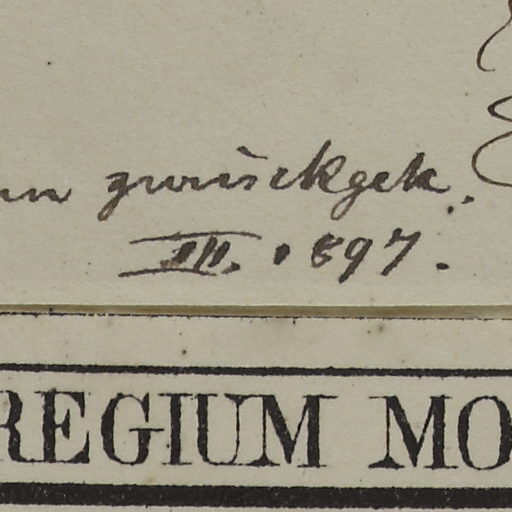 zurückgek.
III. 1897.
REGIUM MO